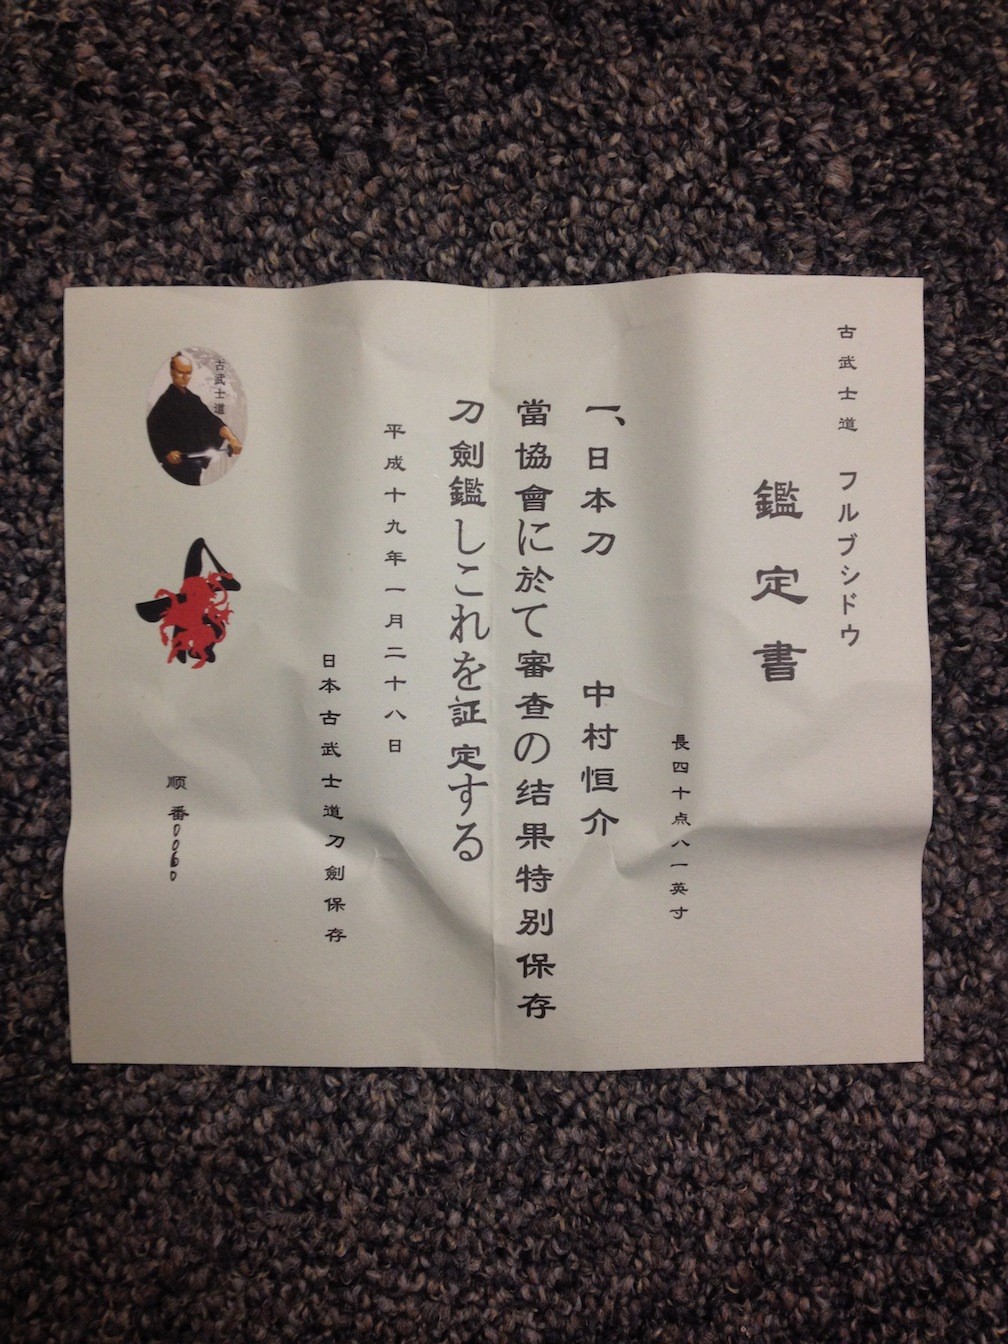 古武士道 フルブシドウ
鑑定書
長四十点八一英寸
一、日本刀 中村恒介
當協會に於て審査の结果特别保存
刀劍鑑しこれを証定する
平成十九年一月二十八日
日本古武士道刀劍保存
古武士道
顺番0060